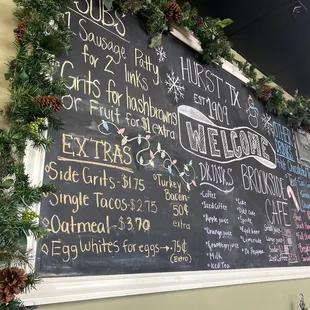 SUBS
1 Sausage Patty
for 2 links
Grits for hashbrowns
or Fruit for $1 extra
EXTRAS
Side Grits - $1.75
Single Tacos - $2.75
Oatmeal - $3.79
Egg Whites for eggs → .75¢
(Extra)
Turkey
Bacon
50¢
extra
HURST TX
EST 1909
WELCOME
DRINKS
Coffee
Iced Coffee
Apple juice
Orange juice
Cranberry juice
Milk
Iced Tea
Coke
Diet Coke
Sprite
Root beer
Limeade
Dr. Pepper
BROOKSIDE
CAFE